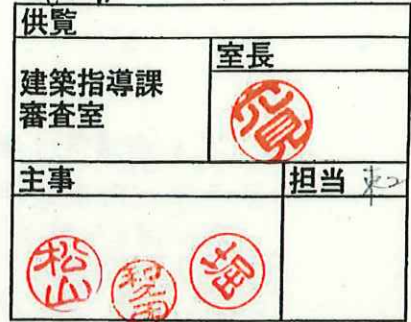 供覧
建築指導課
審査室
室長
主事
担当
松山
堀